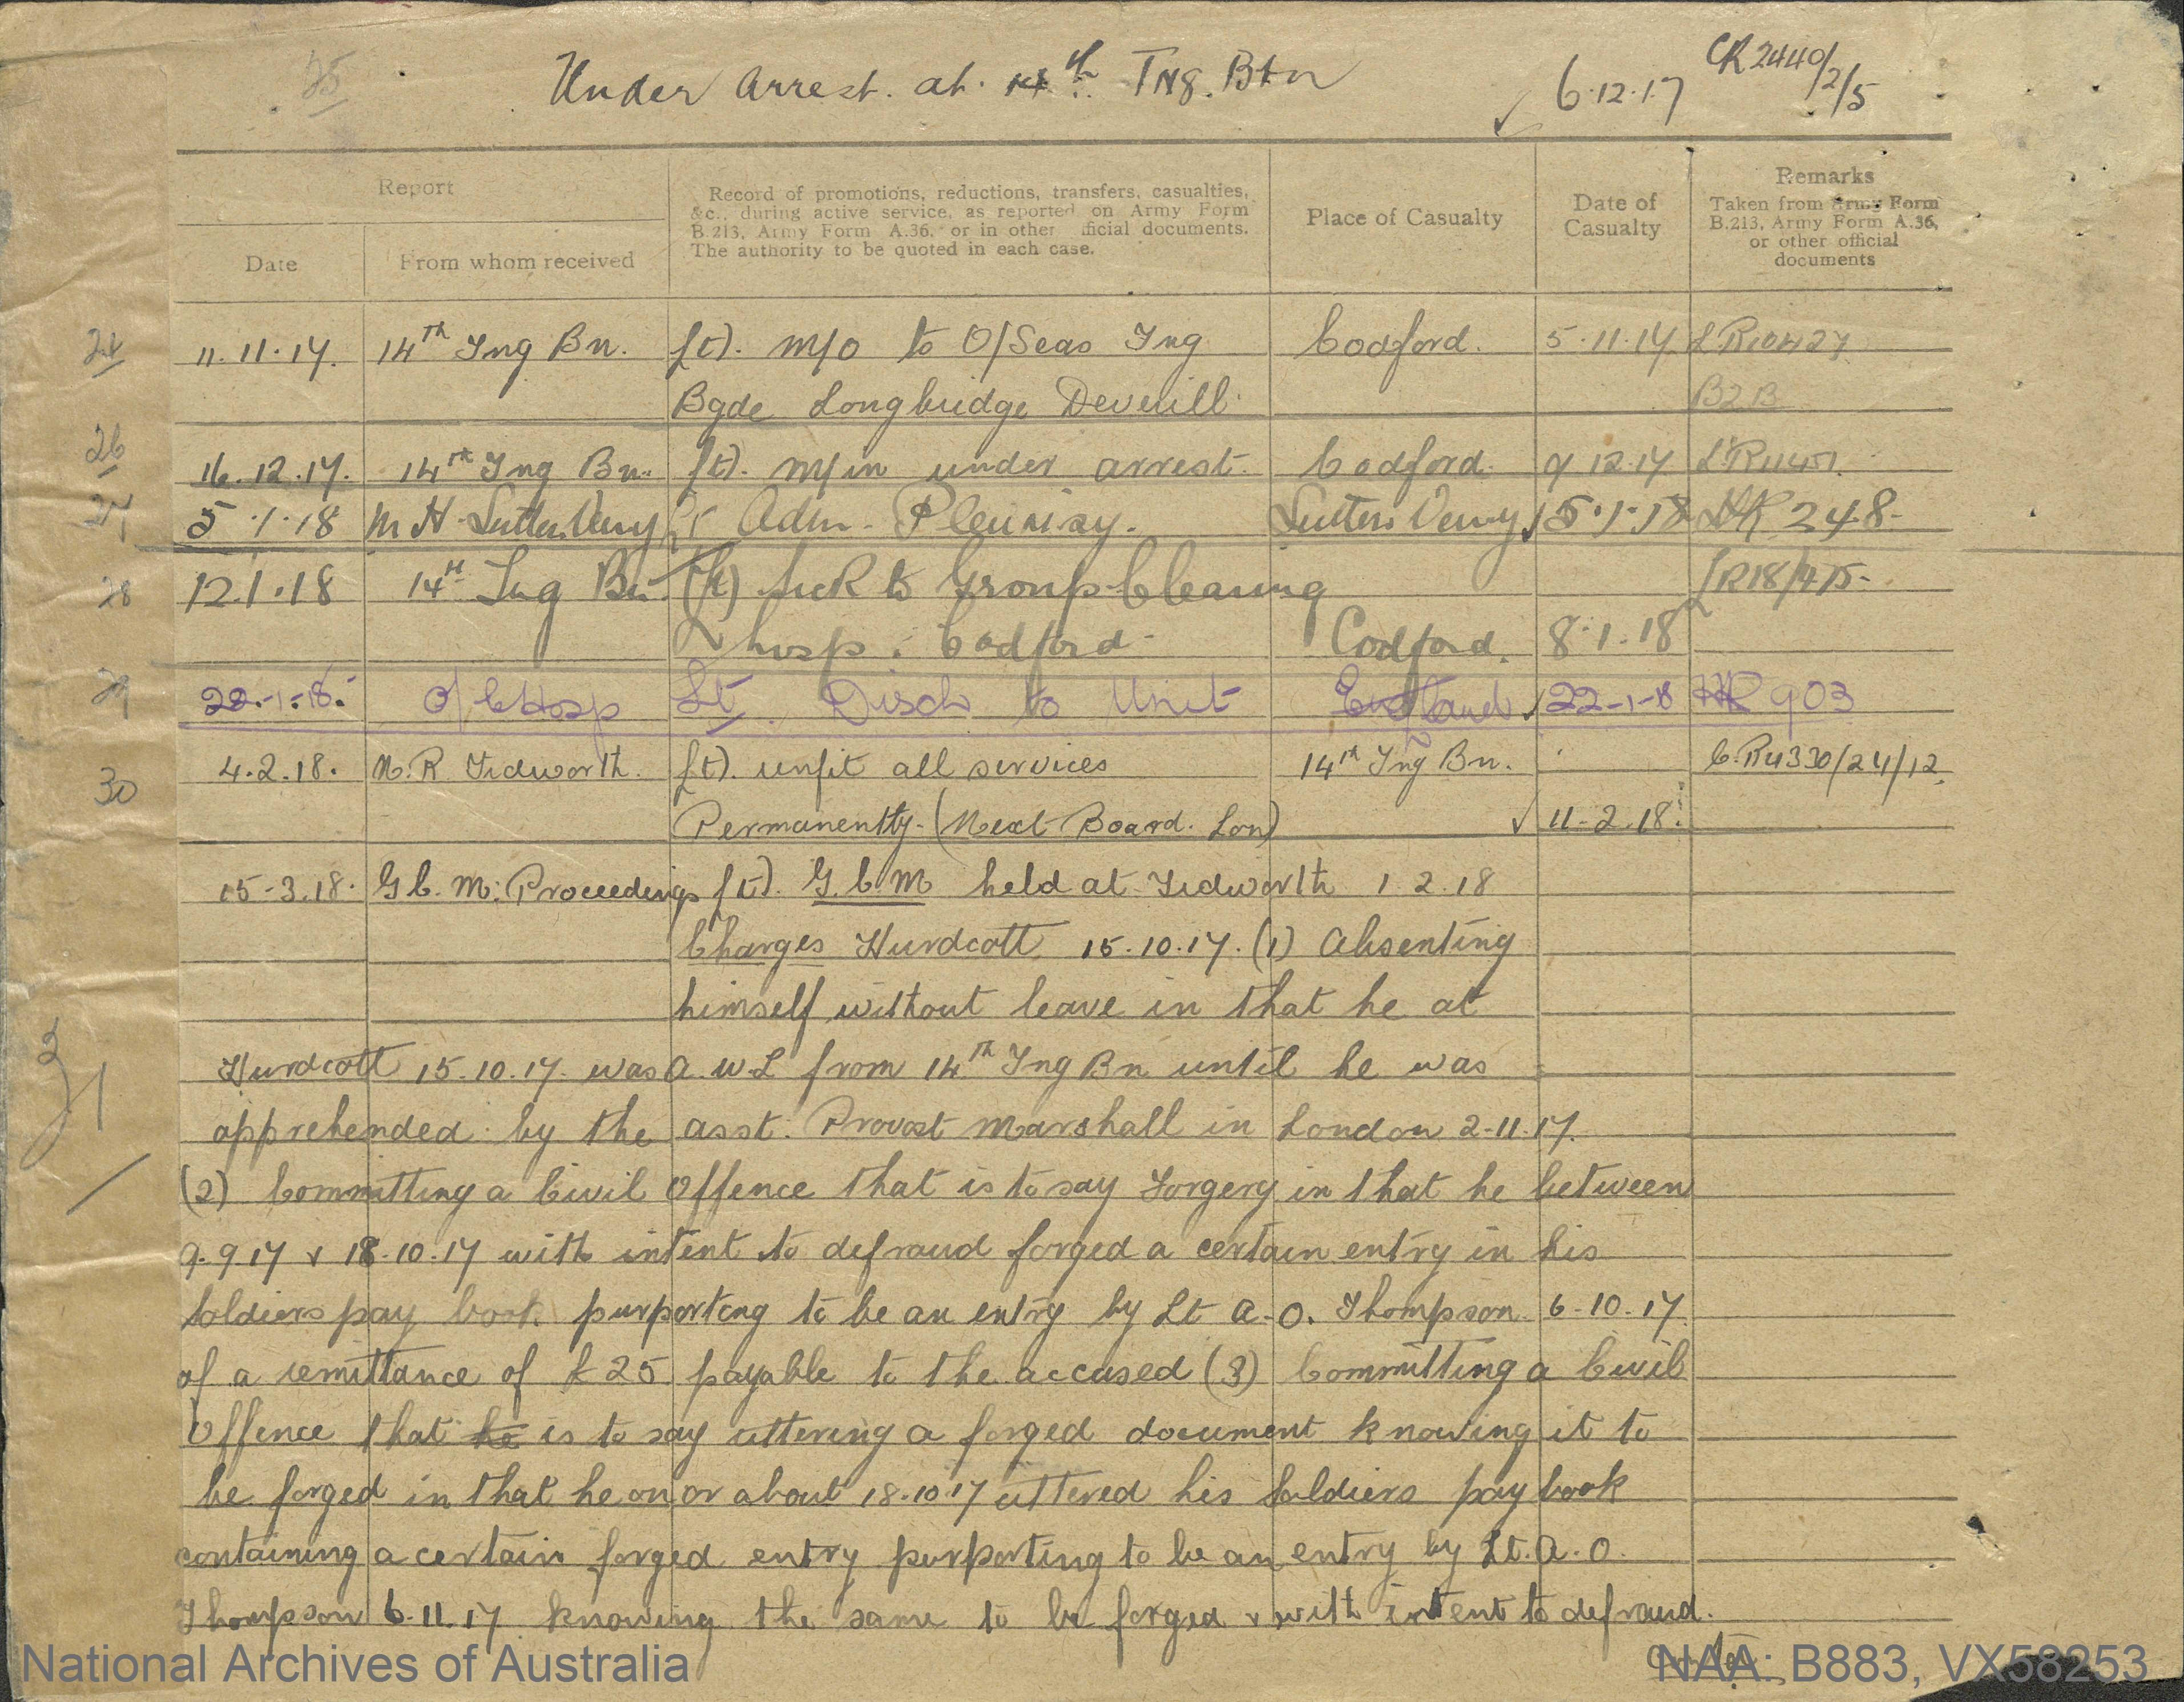 25
Under Arrest. at. 14th Tng. Btn 6.12.17 CR 2440/2/5
Report
Record of promotions, reductions, transfers, casualties, &c., during active service, as reported on Army Form B.213, Army Form A.36, or in other official documents. The authority to be quoted in each case.
Place of Casualty
Date of Casualty
Remarks
Taken from Army Form B.213, Army Form A.36, or other official documents
Date
From whom received
11.11.17. 14th Tng Bn. (t). m/o to O/Seas Tng Codford. 5.11.17
Bgde Longbridge Deverill B213
26 16.12.17. 14th Tng Bn. (t). m/in under arrest. Codford. 9 12.17
27 5.1.18 M H Sutton Veny Adm. Pleurisy. Sutton Veny 5.1.18 HR 248
28 12.1.18 14th Tng Bn (t) sick to Group Clearing
hosp. Codford Codford. 8.1.18
29 22.1.18. O/C Hosp Lt. Disch to Unit England 22-1-18 HR 903
30 4.2.18. Tidworth. (t). unfit all services 14th Tng Bn. C.R4330/24/12.
Permanently. (Medl Board. Lon) 11.2.18.
15-3.18. G.C.M. Proceedings (t). G.C.M held at Tidworth 1.2.18
Charges Hurdcott 15.10.17. (1) Absenting
himself without leave in that he at
31 Hurdcott 15.10.17. was A.W.L from 14th Tng Bn until he was
apprehended by the asst. Provost Marshall in London 2-11.17.
(2) Committing a Civil Offence that is to say Forgery in that he between
9.9.17 & 18.10.17 with intent to defraud forged a certain entry in his
Soldiers pay book purporting to be an entry by Lt A.O. Thompson 6-10.17
of a remittance of £25 payable to the accused (3) Committing a Civil
Offence that he is to say uttering a forged document knowing it to
be forged in that he on or about 18.10.17 uttered his Soldiers pay book
containing a certain forged entry purporting to be an entry by Lt. A.O.
Thompson 6.11.17 knowing the same to be forged & with intent to defraud.
National Archives of Australia
NAA: B883, VX58253